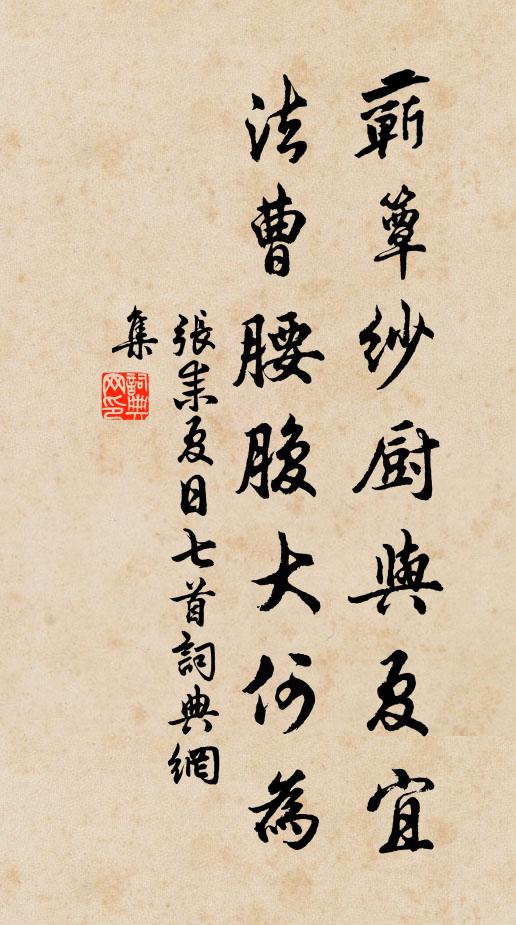 蘄簟紗厨與夏宜
法曹腰腹大何為
張耒夏日七首詞典網
集
詞典網印